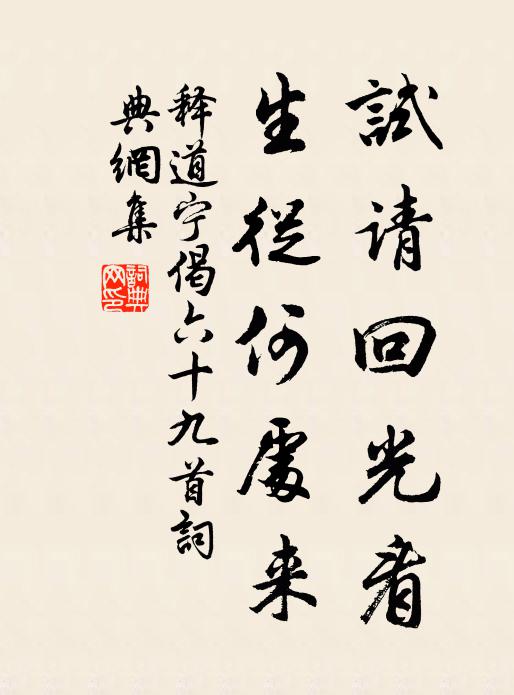 試请回光看
生從何處来
释道宁偈六十九首詞
典網集
詞典网印